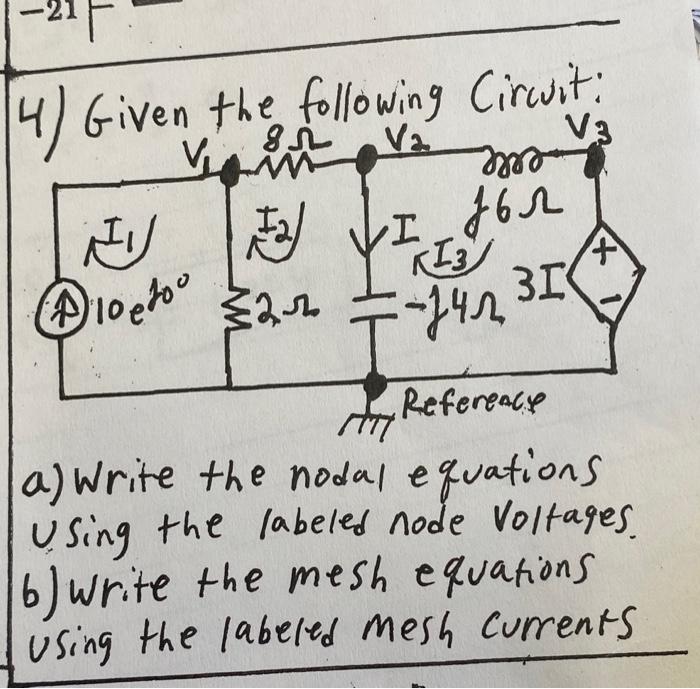 -21
4) Given the following Circuit:
V1 8Ω V2 V3
j6Ω
I1 I2 I I3
10e^j0° 2Ω -j4Ω 3I + -
Reference
a) Write the nodal equations
Using the labeled node Voltages.
b) Write the mesh equations
Using the labeled mesh currents